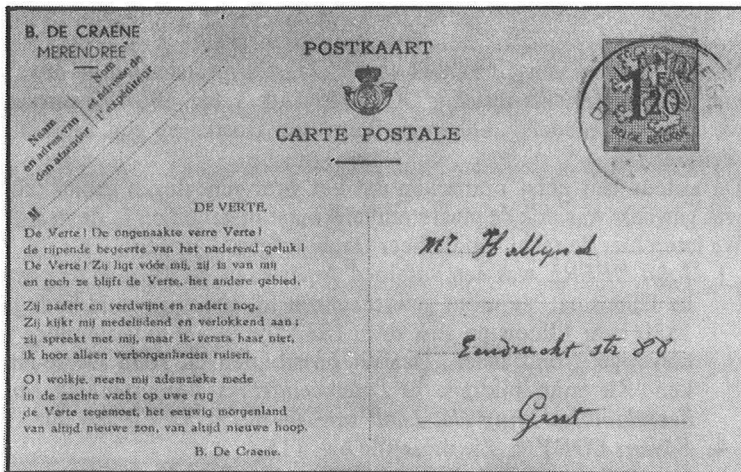 B. DE CRAENE
MERENDREE
Naam
en adres van
den afzender
Nom
et adresse de
l'expéditeur
POSTKAART
CARTE POSTALE
1F
20
BELGIE BELGIQUE
DE VERTE.
De Verte! De ongenaakte verre Verte!
de nijpende begeerte van het naderend geluk!
De Verte! Zij ligt vóór mij, zij is van mij
en toch ze blijft de Verte, het andere gebied.
Zij nadert en verdwijnt en nadert nog.
Zij kijkt mij medelijdend en verlokkend aan;
zij spreekt met mij, maar ik versta haar niet,
ik hoor alleen verborgenheden ruisen.
O! wolkje, neem mij ademzieke mede
in de zachte vacht op uwe rug
de Verte tegemoet, het eeuwig morgenland
van altijd nieuwe zon, van altijd nieuwe hoop.
B. De Craene.
Mr Hallynck
Eendracht str 88
Gent